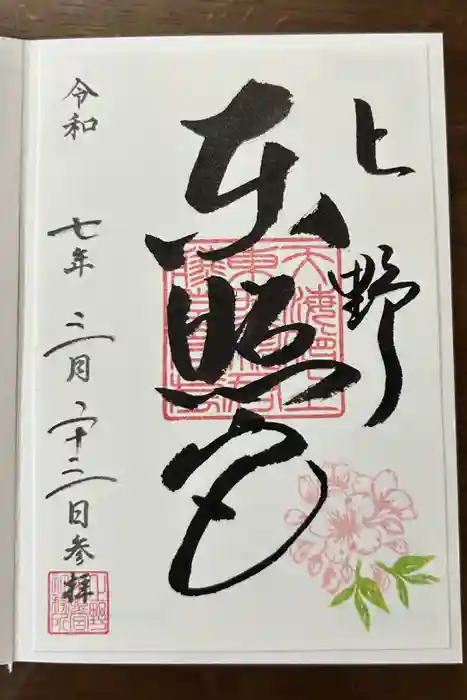 上野
東照宮
天海僧正
令和七年三月二十三日参拝